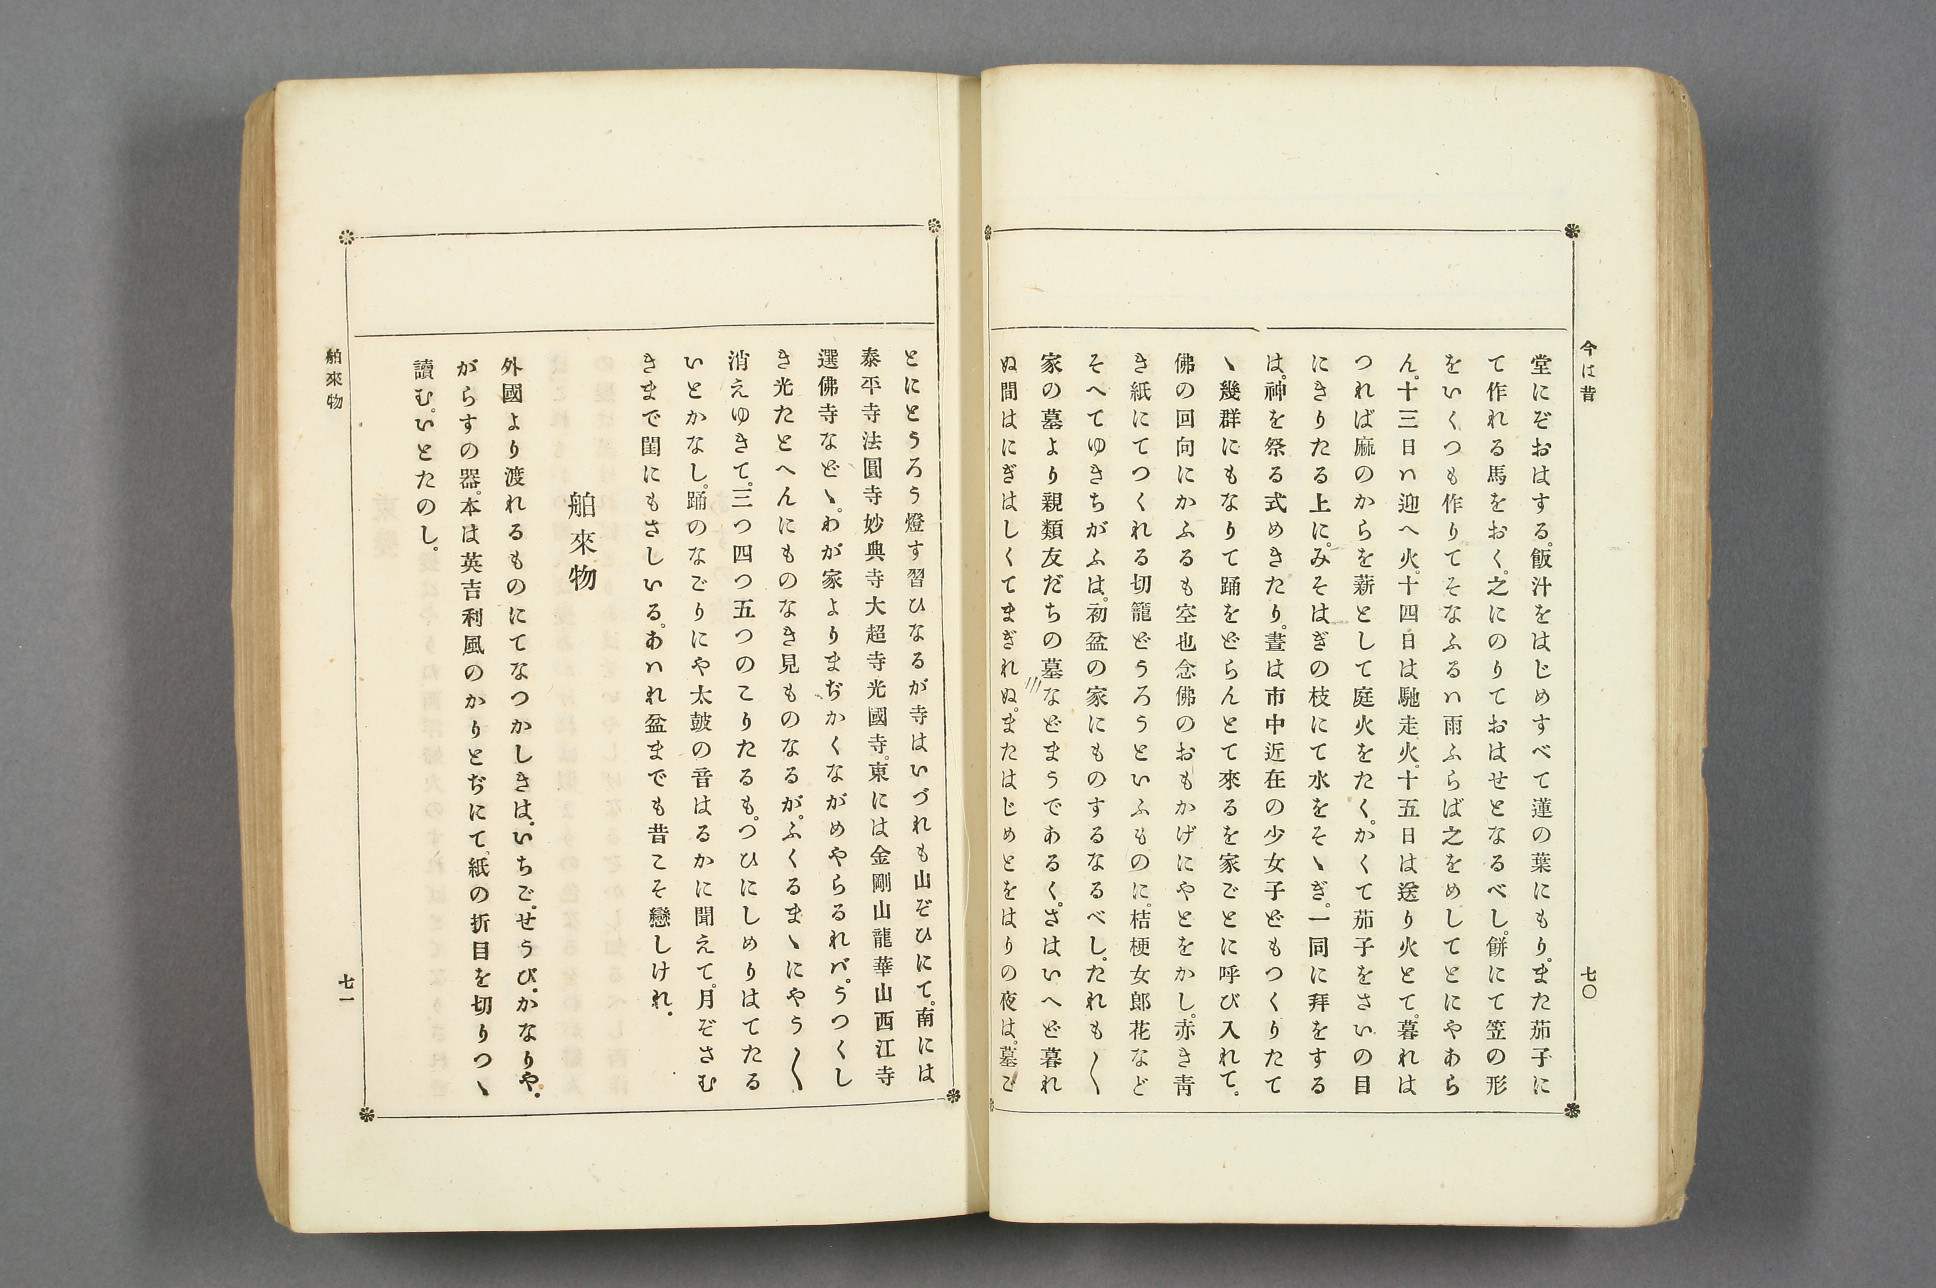 今は昔
七〇
堂にぞおはする。飯汁をはじめすべて蓮の葉にもり。また茄子に
て作れる馬をおく。之にのりておはせとなるべし。餅にて笠の形
をいくつも作りてそなふるハ雨ふらば之をめしてとにやあら
ん。十三日ハ迎へ火。十四日は馳走火。十五日は送り火とて。暮れは
つれば麻のからを薪として庭火をたく。かくて茄子をさいの目
にきりたる上に。みそはぎの枝にて水をそゝぎ。一同に拜をする
は。神を祭る式めきたり。晝は市中近在の少女子どもつくりたて
ゝ幾群にもなりて踊をどらんとて來るを家ごとに呼び入れて。
佛の回向にかふるも空也念佛のおもかげにやとをかし。赤き靑
き紙にてつくれる切籠どうろうといふものに。桔梗女郎花など
そへてゆきちがふは。初盆の家にものするなるべし。たれも〱
家の墓より親類友だちの墓などまうであるく。さはいへど暮れ
ぬ間はにぎはしくてまぎれぬ。またはじめとをはりの夜は。墓ご
とにとうろう燈す習ひなるが寺はいづれも山ぞひにて。南には
泰平寺法圓寺妙典寺大超寺光國寺。東には金剛山龍華山西江寺
選佛寺などゝ。わが家よりまぢかくながめやらるれバ。うつくし
き光たとへんにものなき見ものなるが。ふくるまゝにやう〱
消えゆきて。三つ四つ五つのこりたるも。つひにしめりはてたる
いとかなし。踊のなごりにや太鼓の音はるかに聞えて。月ぞさむ
きまで閨にもさしいる。あハれ盆までも昔こそ戀しけれ。
舶來物
外國より渡れるものにてなつかしきは。いちご。せうび。かなりや。
がらすの器。本は英吉利風のかりとぢにて、紙の折目を切りつゝ
讀む。いとたのし。
舶來物
七一